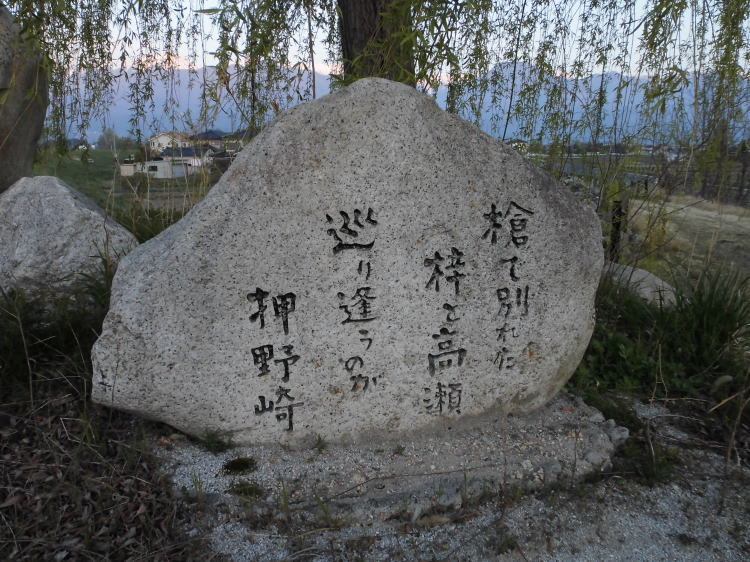 槍で別れた
梓と高瀬
巡り逢うのが
押野崎